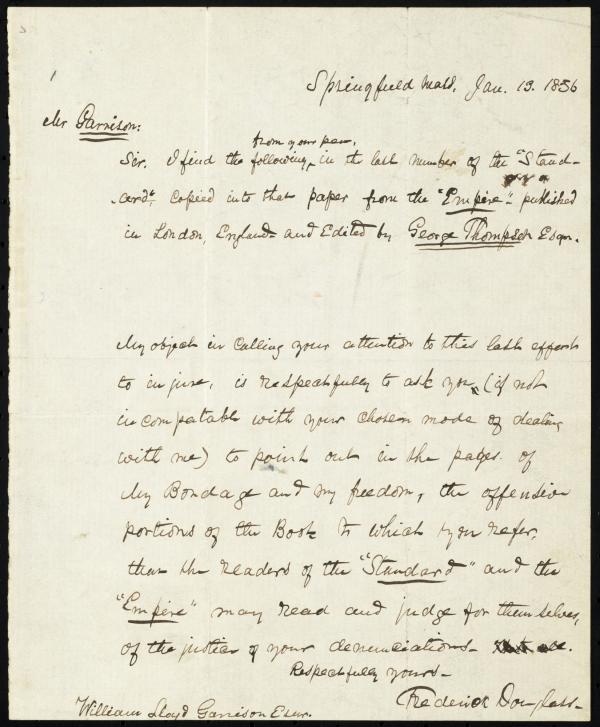 Springfield Mass, Jan. 13. 1856
Mr Garrison:
from your pen,
Sir. I find the following, in the last number of the "Stand-
ard", Copied into that paper from the "Empire"- published
in London, England- and Edited by George Thompson Esqr.
My object in calling your attention to this last effort
to injure, is respectfully to ask you, (if not
incompatable with your chosen mode of dealing
with me) to point out in the pages of
My Bondage and my freedom, the offensive
portions of the Book to which you refer,
that the readers of the "Standard" and the
"Empire" may read and judge for themselves,
of the justice of your denunciations-
Respectfully yours-
Frederick Douglass-
William Lloyd Garrison Esqr.